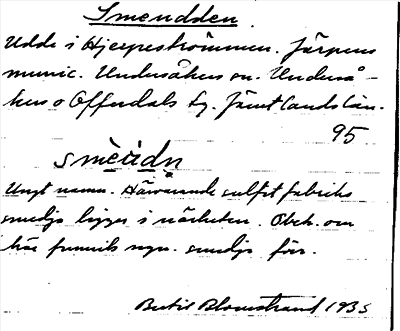 Smendden.
Udde i Hjerpeströmmen. Järpens
munic. Undersåkers sn. Underså-
kers o Offerdals tg. Jämtlands län.
95
smèɩ̀dn̥
Ungt namn. Härvarande sulfitfabriks
smedja ligger i närheten. Obek. om
här funnits ngn. smedja förr.
Bertil Blomstrand 1935